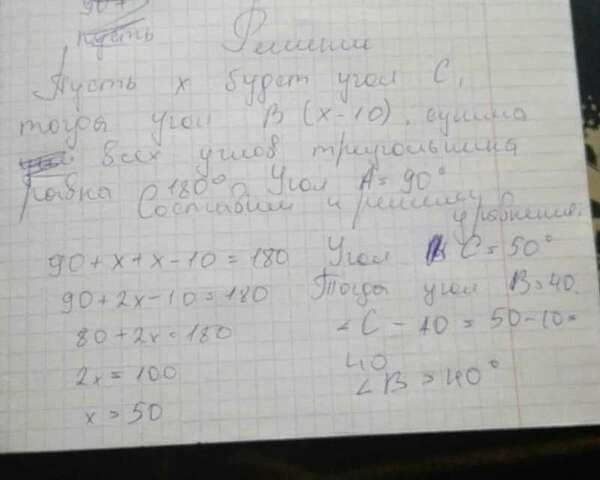 90+
пусть
Решение
Пусть x будет угол C,
тогда угол B (x-10). сумма
всех углов треугольника
равна 180°. Угол A = 90°
Составим и решим
уравнение:
90+x+x-10=180
90+2x-10=180
80+2x=180
2x=100
x=50
Угол C=50°
Тогда угол B=40.
∠C-10=50-10=
40
∠B=40°